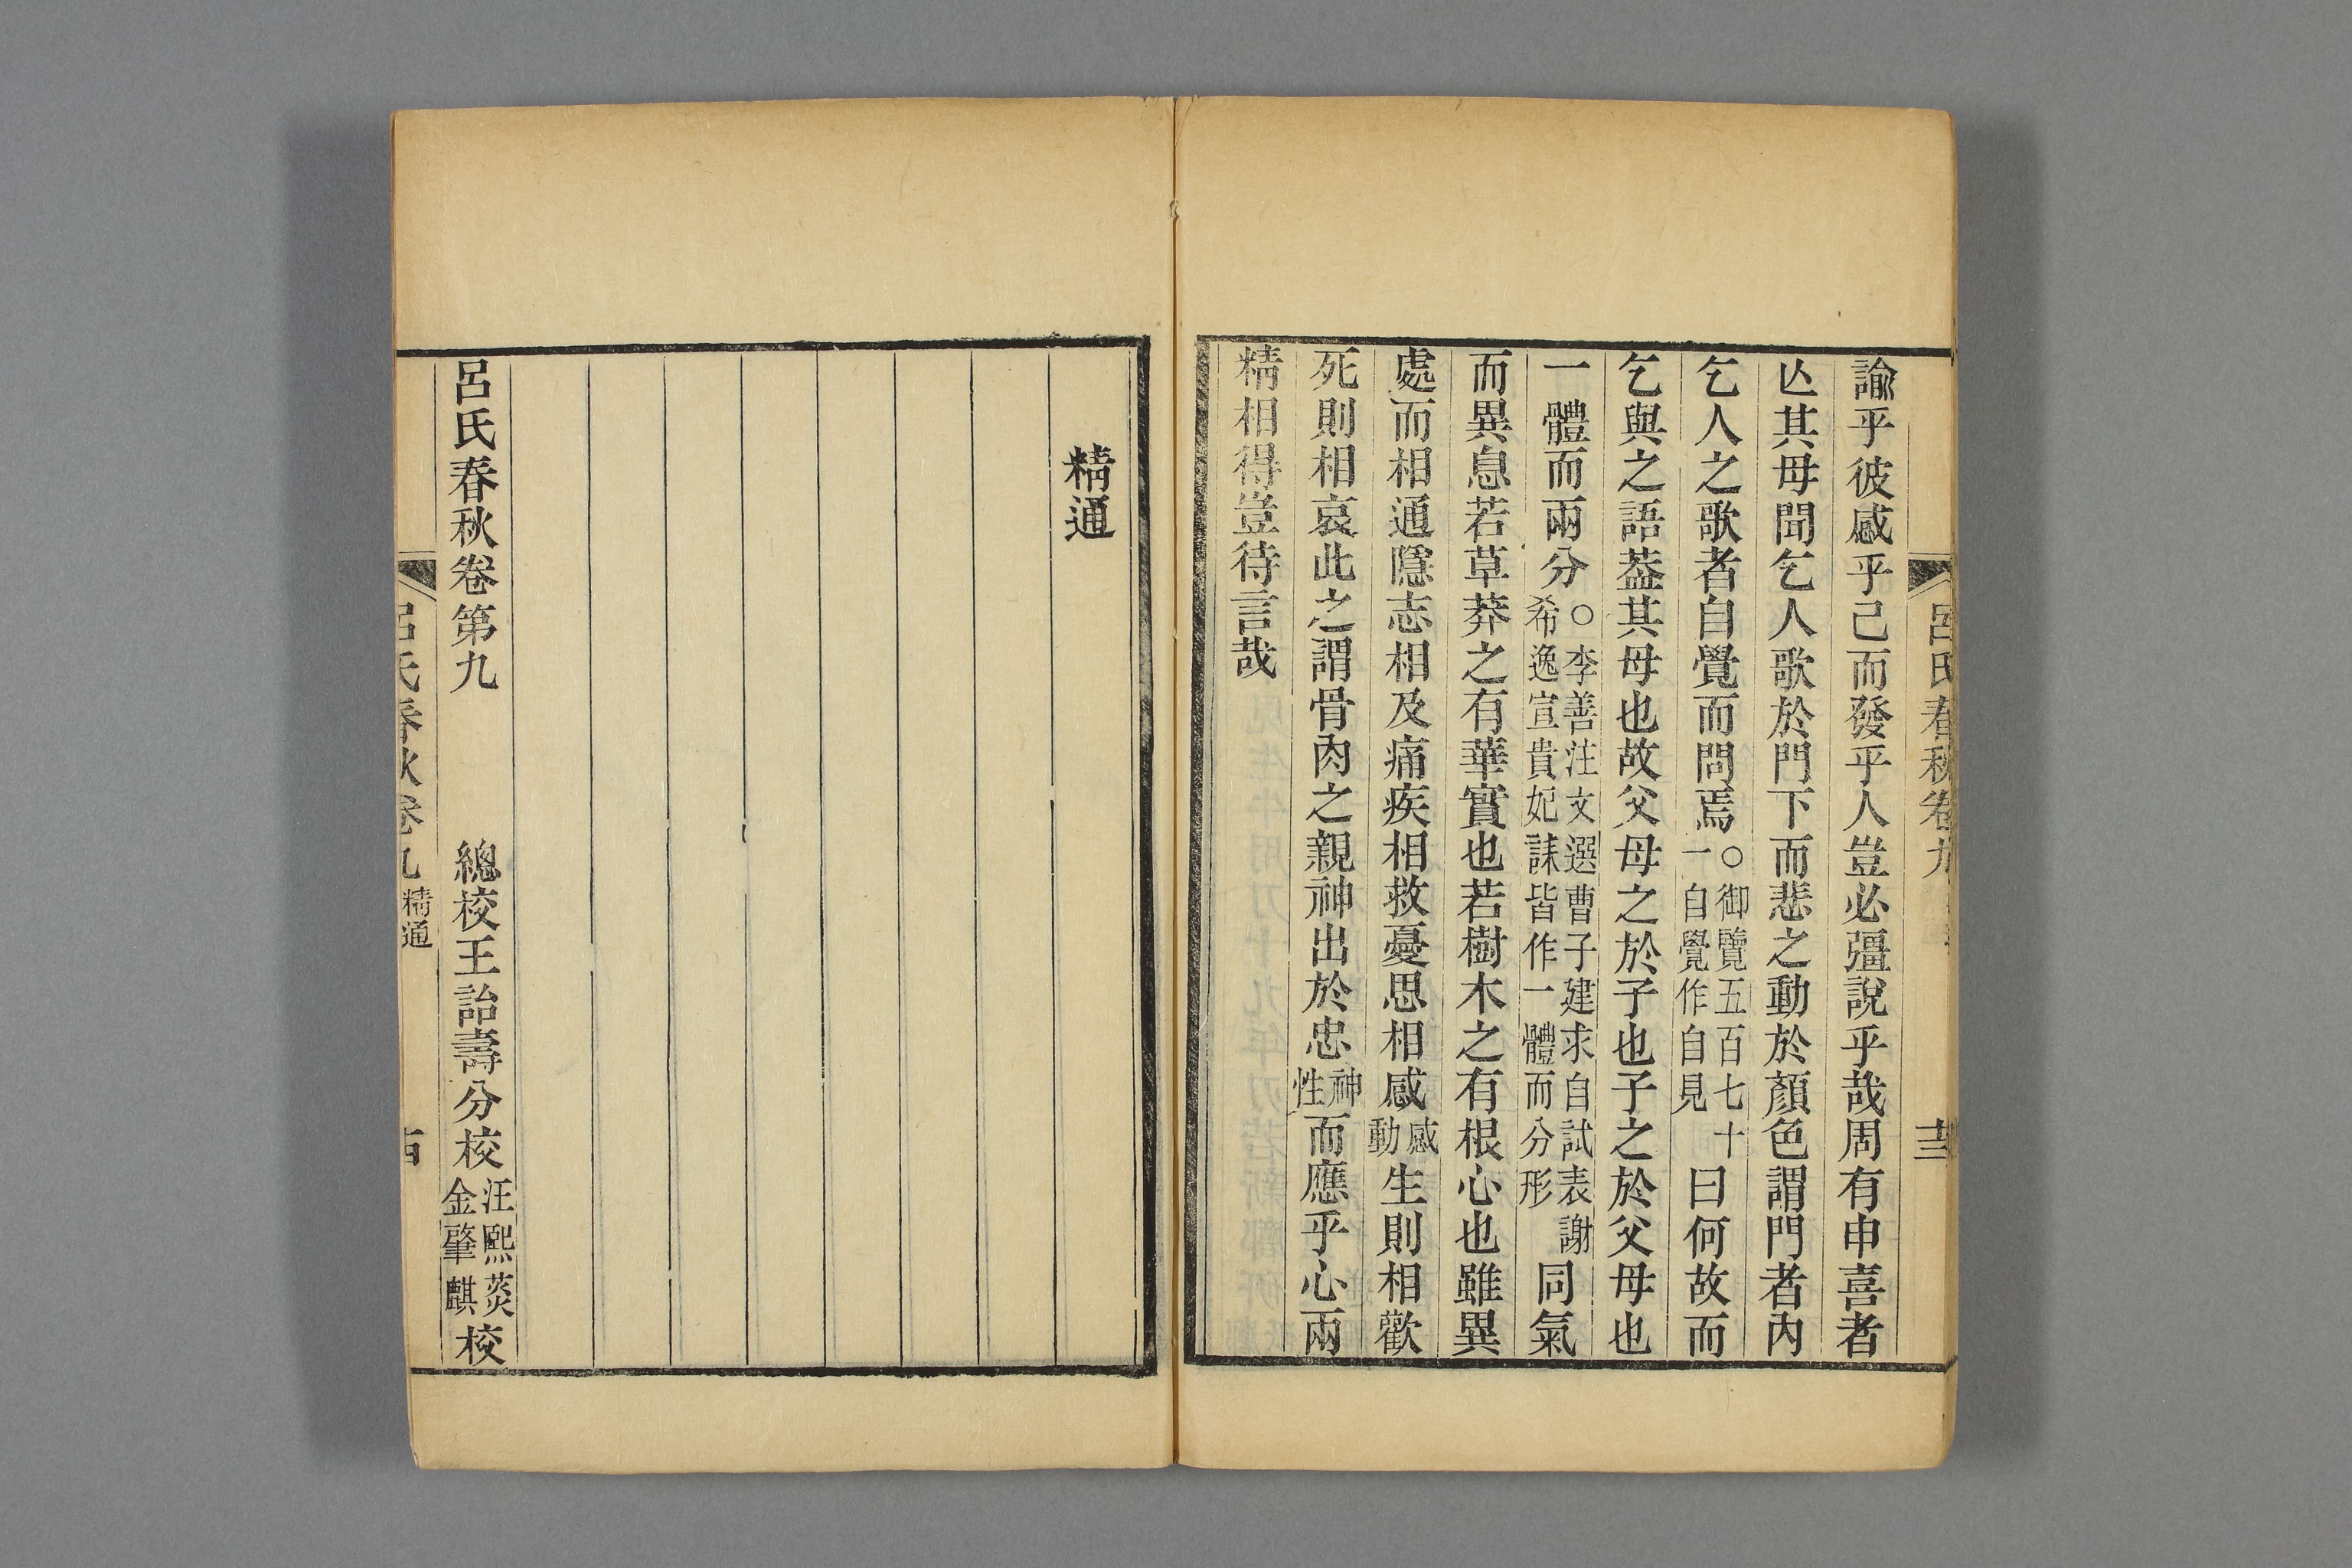 諭乎彼感乎己而發乎人豈必彊說乎哉周有申喜者
亾其母聞乞人歌於門下而悲之動於顏色謂門者內
乞人之歌者自覺而問焉○御覽五百七十一自覺作自見曰何故而
乞與之語葢其母也故父母之於子也子之於父母也
一體而兩分○李善注文選曹子建求自試表謝希逸宣貴妃誄皆作一體而分形同氣
而異息若草莽之有華實也若樹木之有根心也雖異
處而相通隱志相及痛疾相救憂思相感感動生則相歡
死則相哀此之謂骨肉之親神出於忠神性而應乎心兩
精相得豈待言哉
精通
呂氏春秋卷第九 總校王詒壽分校汪熙金肇麒校
呂氏春秋卷九 精通